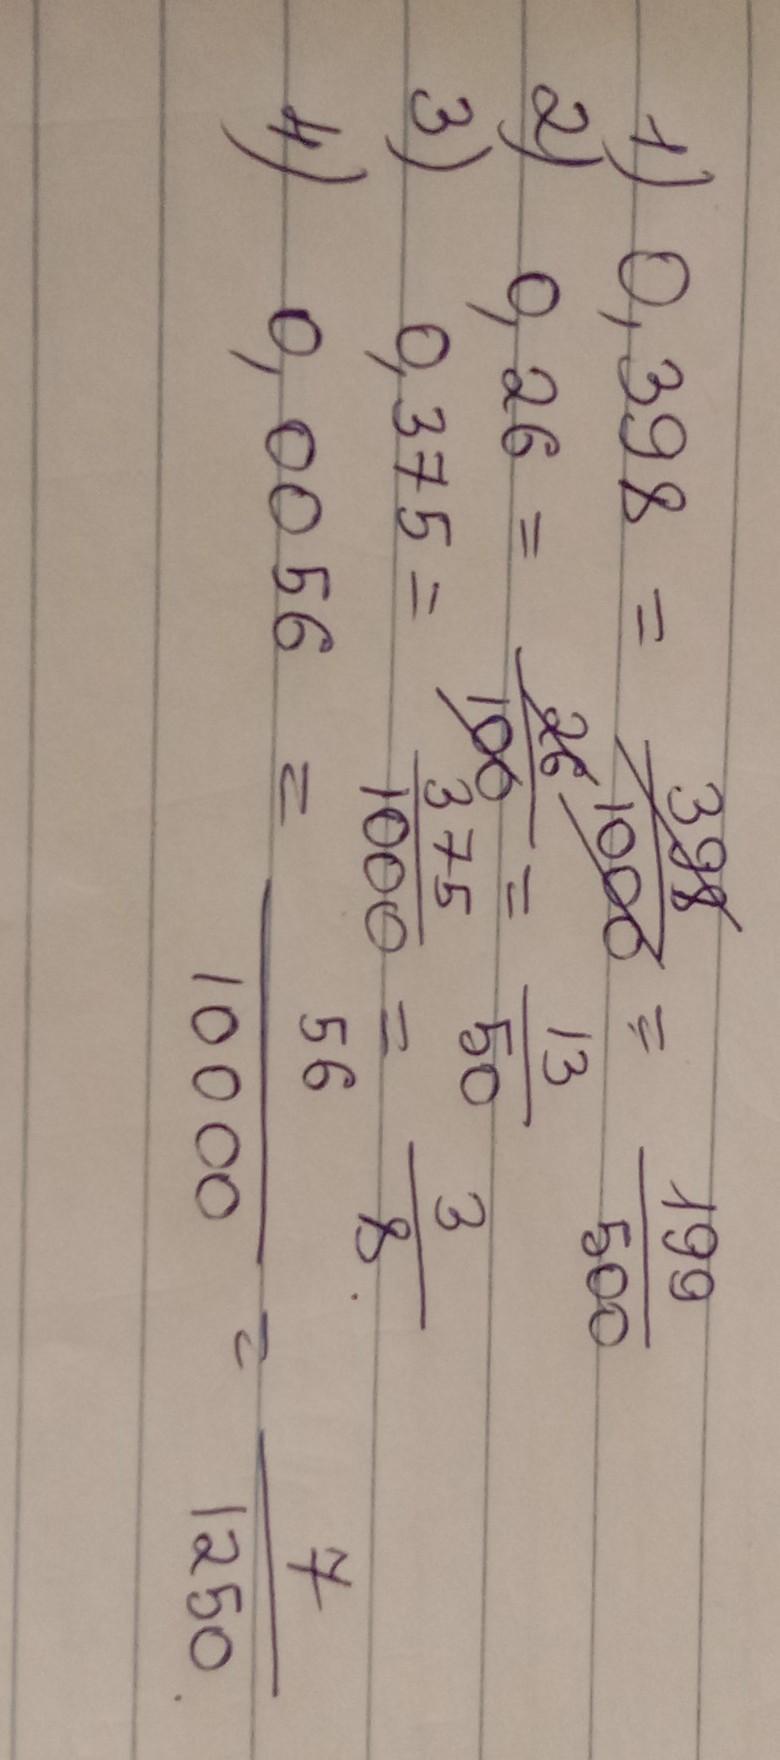 1) 0,398 = 398/1000 = 199/500
2) 0,26 = 26/100 = 13/50
3) 0,375 = 375/1000 = 3/8
4) 0,0056 = 56/10000 = 7/1250